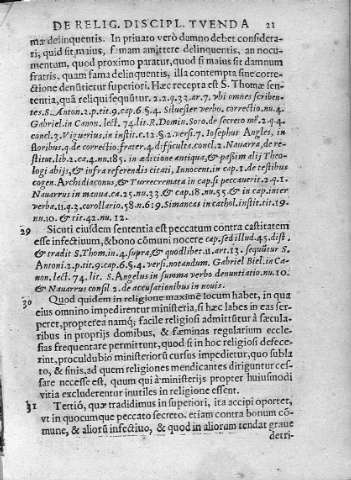 DE RELIG. DISCIPL. TVENDA 21
mæ delinquentis. In priuato verò damno debet considera-
ri, quid sit maius, famam amittere delinquentis, an nocu-
mentum, quod proximo paratur, quod si maius sit damnum
fratris, quam fama delinquentis, illa contempta sine corre-
ctione denũtietur superiori. Hæc recepta est S. Thomæ sen-
tentia, quã reliqui sequũtur. 2.2.q.33.ar.7. vbi omnes scriben-
tes. S. Anton. 2.p.tit.9.cap.6.§.4. Siluester verbo. correctio. nu.4.
Gabriel. in Canon. lect. 74. lit. R. Domin. Soto. de secreto mẽ. 2.q.4.
concl.7. Viguerius, in instit. c.12.§.2. versi.7. Iosephus Angles, in
floribus. q. de correctio. frater. 4. difficulte. concl. 2. Nauarra, de re-
stitut. lib. 2. ca.4. nu.185. in aditione antiqua, & passim alij Theo-
logi abijs, & infra referendis citati, Innocent. in cap.1. de testibus
cogen. Archidiaconus, & Turrecremata in cap. si peccauerit. 2.q.1.
Nauarrus in manu. ca.25. nu.33. & cap.18. nu.55. & in cap. inter
verba. 11.q.3. corollario. 58. n.619. Simancas in cathol. instit. tit. 19.
nu.10. & tit. 42. nu. 12.
29 Sicuti eiusdem sententia est peccatum contra castitatem
esse infectiuum, & bono cõmuni nocere cap. sed illud. 45. dist.
& tradit S. Thom. in 4. supra, & quodliber. 11. art. 13. sequũtur S.
Antoni. 2.p. tit. 9. cap. 6.§.4. versi. notandum. Gabriel Biel. in Ca-
non. lect. 74. lit. S. Angelus in summa verbo denuntiatio. nu.10.
& Nauarrus consil 2. de accusationibus in nouis.
30 Quod quidem in religione maximè locum habet, in qua
eius omnino impedirentur ministeria, si hæc labes in eas ser-
peret, propterea namq; facile religiosi admittũtur à sæcula-
ribus in proprijs domibus, & fæminas regularium eccle-
sias frequentare permittunt, quod si in hoc religiosi defece-
rint, proculdubio ministeriorũ cursus impedietur, quo subla
to, & finis, ad quem religiones mendicantes diriguntur ces-
sare necesse est, quum qui à ministerijs propter huiusmodi
vitia excluderentur inutiles in religione essent.
31 Tertiò, quæ tradidimus in superiori, ita accipi oportet,
vt in quocumque peccato secreto. etiam contra bonum cõ-
mune, & aliorũ infectiuo, & quod in aliorum tendat graue
detri-